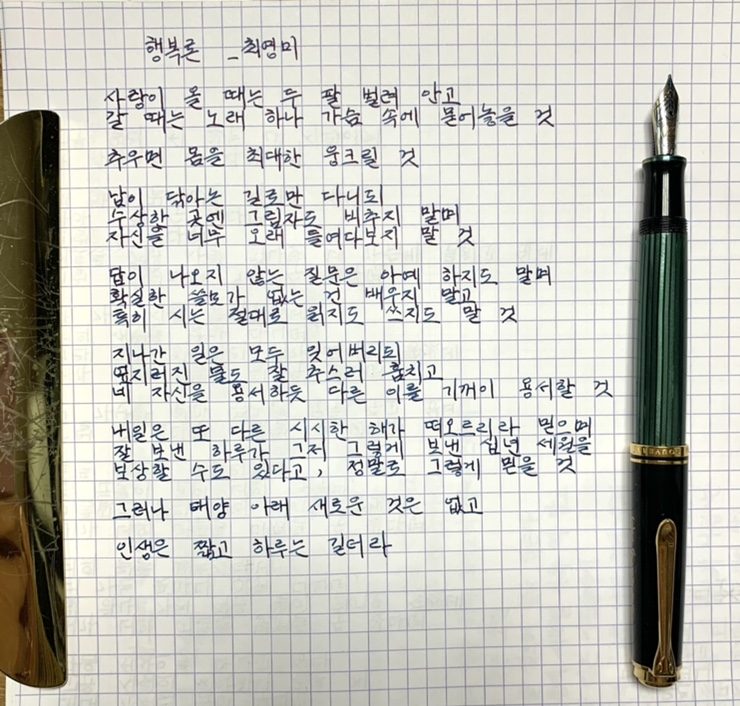 행복론 _최영미
사랑이 올 때는 두 팔 벌려 안고
갈 때는 노래 하나 가슴 속에 묻어놓을 것
추우면 몸을 최대한 웅크릴 것
남이 닦아논 길로만 다니되
수상한 곳엔 그림자도 비추지 말며
자신을 너무 오래 들여다보지 말 것
답이 나오지 않는 질문은 아예 하지도 말며
확실한 쓸모가 없는 건 배우지 말고
특히 시는 절대로 읽지도 쓰지도 말 것
지나간 일은 모두 잊어버리되
엎지러진 물도 잘 추스려 훔치고
네 자신을 용서하듯 다른 이를 기꺼이 용서할 것
내일은 또 다른 시시한 해가 떠오르리라 믿으며
잘 보낸 하루가 그저 그렇게 보낸 십년 세월을
보상할 수도 있다고, 정말로 그렇게 믿을 것
그러나 태양 아래 새로운 것은 없고
인생은 짧고 하루는 길더라